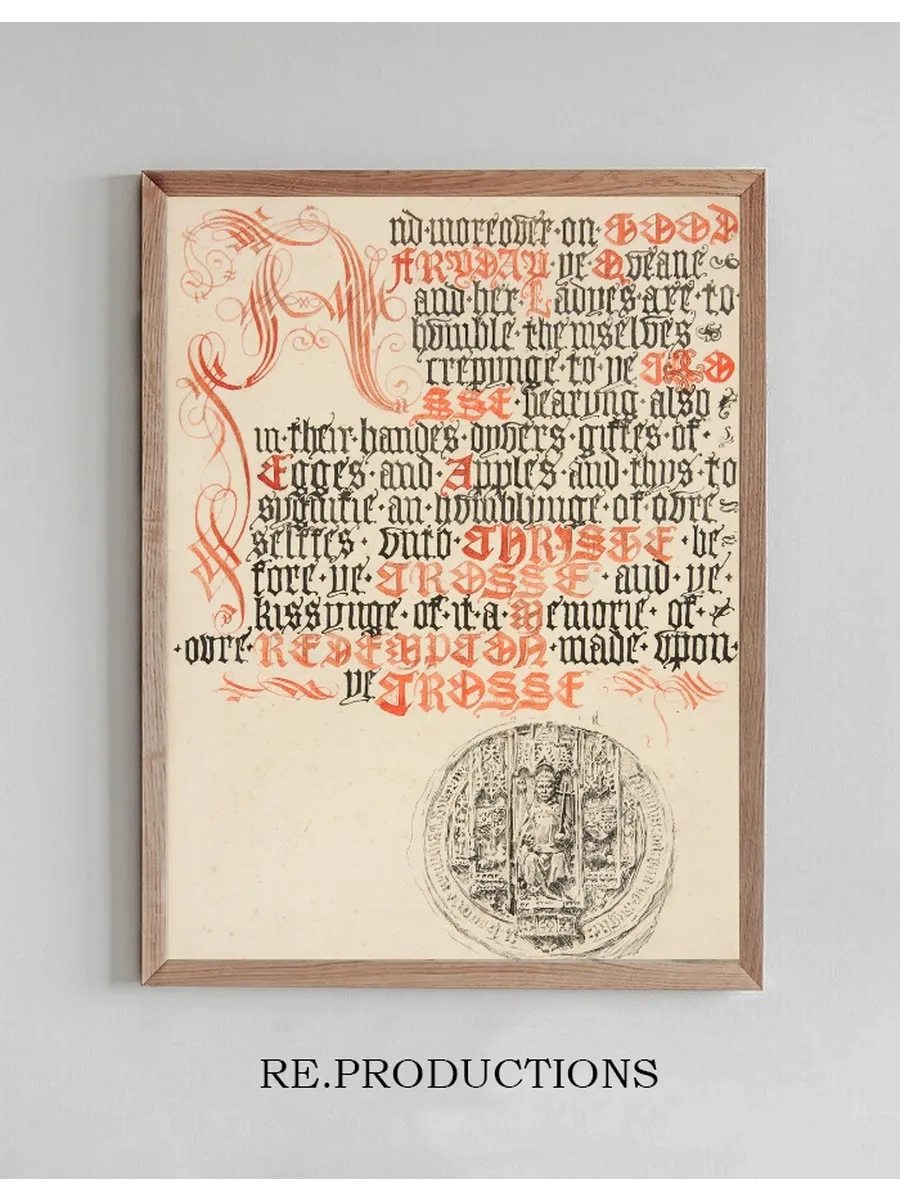 And·moreover·on·GOOD
FRYDAY·ye·Qveane
and·her·Ladyes·are·to·
hvmble·themselves
crepynge·to·ye CRO
SSE·bearyng·also
in·their·handes·dyvers·giftes·of·
Egges·and·Apples·and·thys·to
sygnifie·an·hvmblynge·of·ovre
selffes·vnto·CHRISTE·be
fore·ye·CROSSE·and·ye·
kissynge·of·it·a·Memorie·of·
·ovre·REDEMPCION·made·vpon·
ye CROSSE
RE.PRODUCTIONS